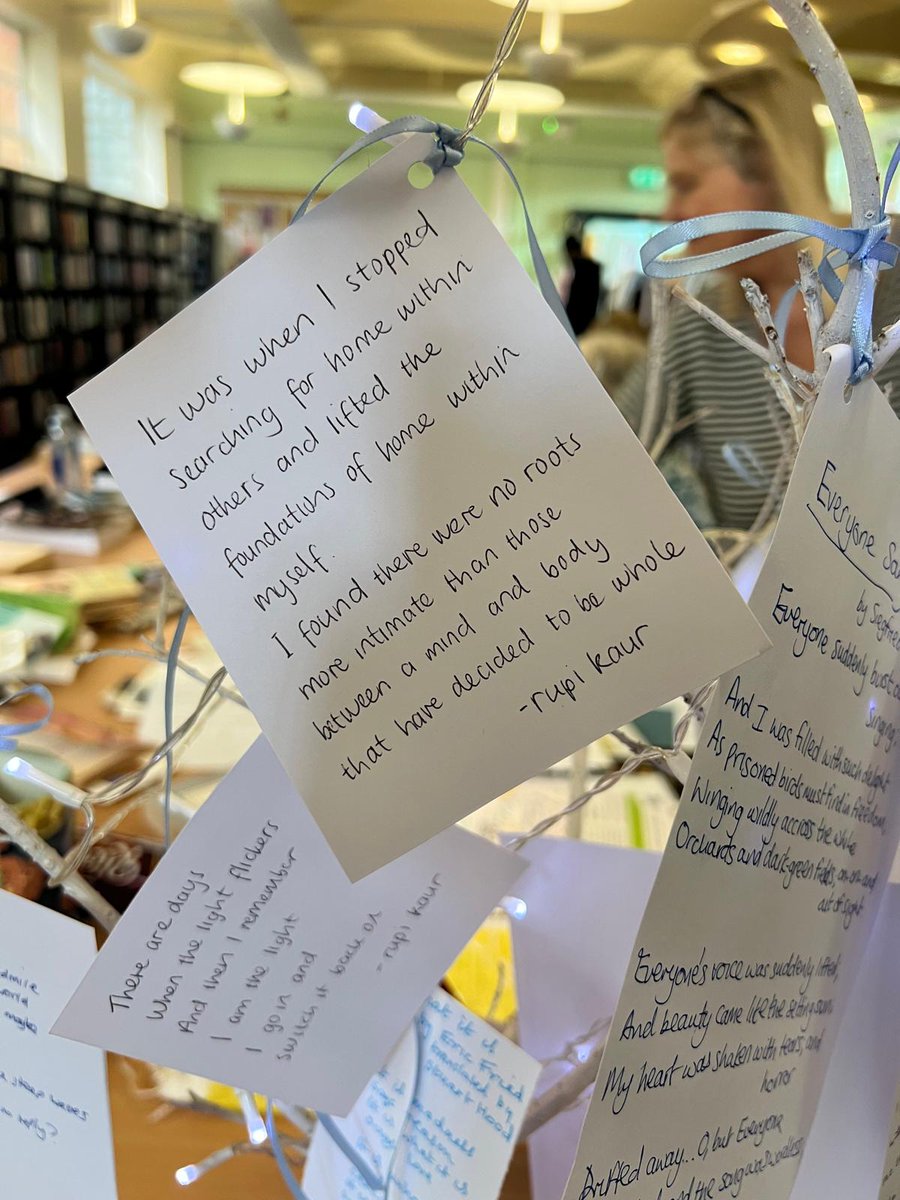 It was when I stopped
searching for home within
others and lifted the
foundations of home within
myself.
I found there were no roots
more intimate than those
between a mind and body
that have decided to be whole
-rupi kaur
There are days
When the light flickers
And then I remember
I am the light
I go in and
switch it back on
- rupi kaur
Everyone
by
Everyone suddenly burst
singing
And I was filled with such delight
As prisoned birds must find in freedom,
Winging wildly across the white
Orchards and dark-green fields, on-on-and
out of sight
Everyone's voice was suddenly lifted,
And beauty came like the setting sun
My heart was shaken with tears, and
horror
Drifted away... O, but Everyone
and the song was wordless
it is
Eric Fried
translated by
reply?